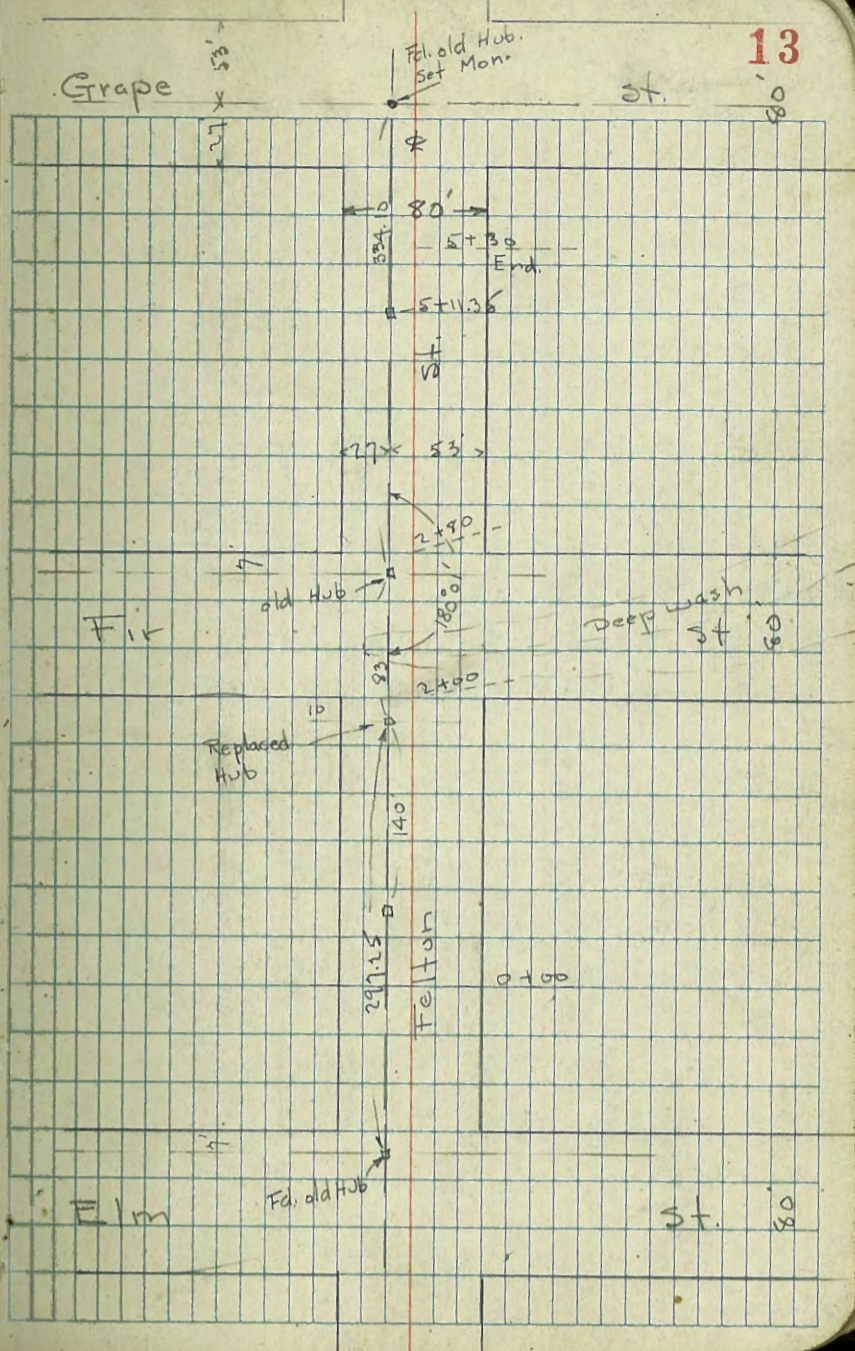 13
Fd. old Hub.
Set Mon.
53'
Grape St. 80'
27
80'
334.10
5+30
End.
5+11.35
St.
27 53'
2+80
7'
old Hub
180°01'
Deep wash
Fir St 80'
83'
2+00
10
Replaced
Hub
140'
297.25
Felton
0+00
7'
Fd. old Hub
Elm St. 80'